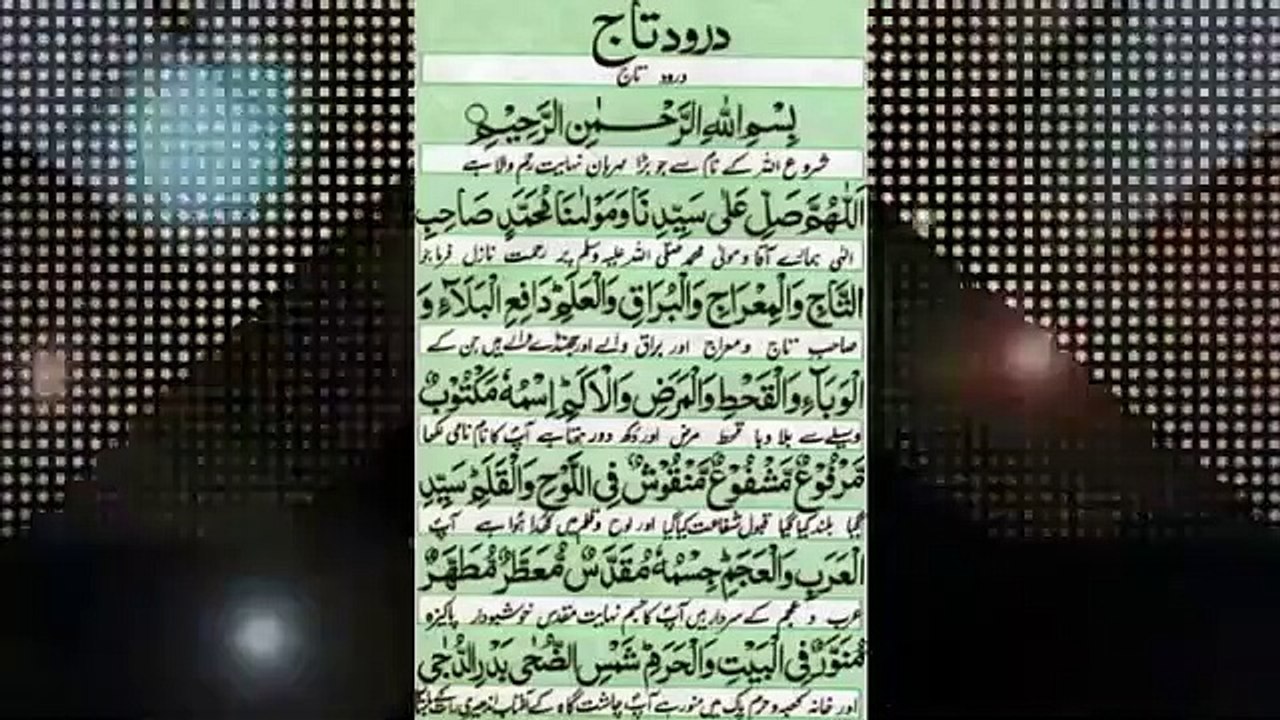 درود تاج
درود تاج
بِسْمِ اللهِ الرَّحْمٰنِ الرَّحِيْمِ
شروع اللہ کے نام سے جو بڑا مہربان نہایت رحم والا ہے
اَللّٰهُمَّ صَلِّ عَلٰى سَيِّدِنَا وَمَوْلٰىنَا مُحَمَّدٍ صَاحِبِ
الٰہی ہمارے آقا و مولیٰ محمد صلی اللہ علیہ وسلم پر رحمت نازل فرما جو
التَّاجِ وَالْمِعْرَاجِ وَالْبُرَاقِ وَالْعَلَمِ دَافِعِ الْبَلَآءِ وَ
صاحب تاج و معراج اور براق والے اور جھنڈے والے ہیں جن کے
الْوَبَآءِ وَالْقَحْطِ وَالْمَرَضِ وَالْاَلَمِ اِسْمُهٗ مَكْتُوْبٌ
وسیلے سے بلا وبا قحط مرض اور دکھ دور ہوتا ہے آپ کا نام نامی لکھا
مَّرْفُوْعٌ مَّشْفُوْعٌ مَّنْقُوْشٌ فِى اللَّوْحِ وَالْقَلَمِ سَيِّدِ
گیا بلند کیا گیا قبول شفاعت کیا گیا اور لوح و قلم میں کھدا ہوا ہے آپ
الْعَرَبِ وَالْعَجَمِ جِسْمُهٗ مُقَدَّسٌ مُّعَطَّرٌ مُّطَهَّرٌ
عرب و عجم کے سردار ہیں آپ کا جسم نہایت مقدس خوشبودار پاکیزہ
مُّنَوَّرٌ فِى الْبَيْتِ وَالْحَرَمِ شَمْسِ الضُّحٰى بَدْرِ الدُّجٰى
اور خانہ کعبہ و حرم پاک میں منور ہے آپ چاشت گاہ کے آفتاب اندھیری رات کے